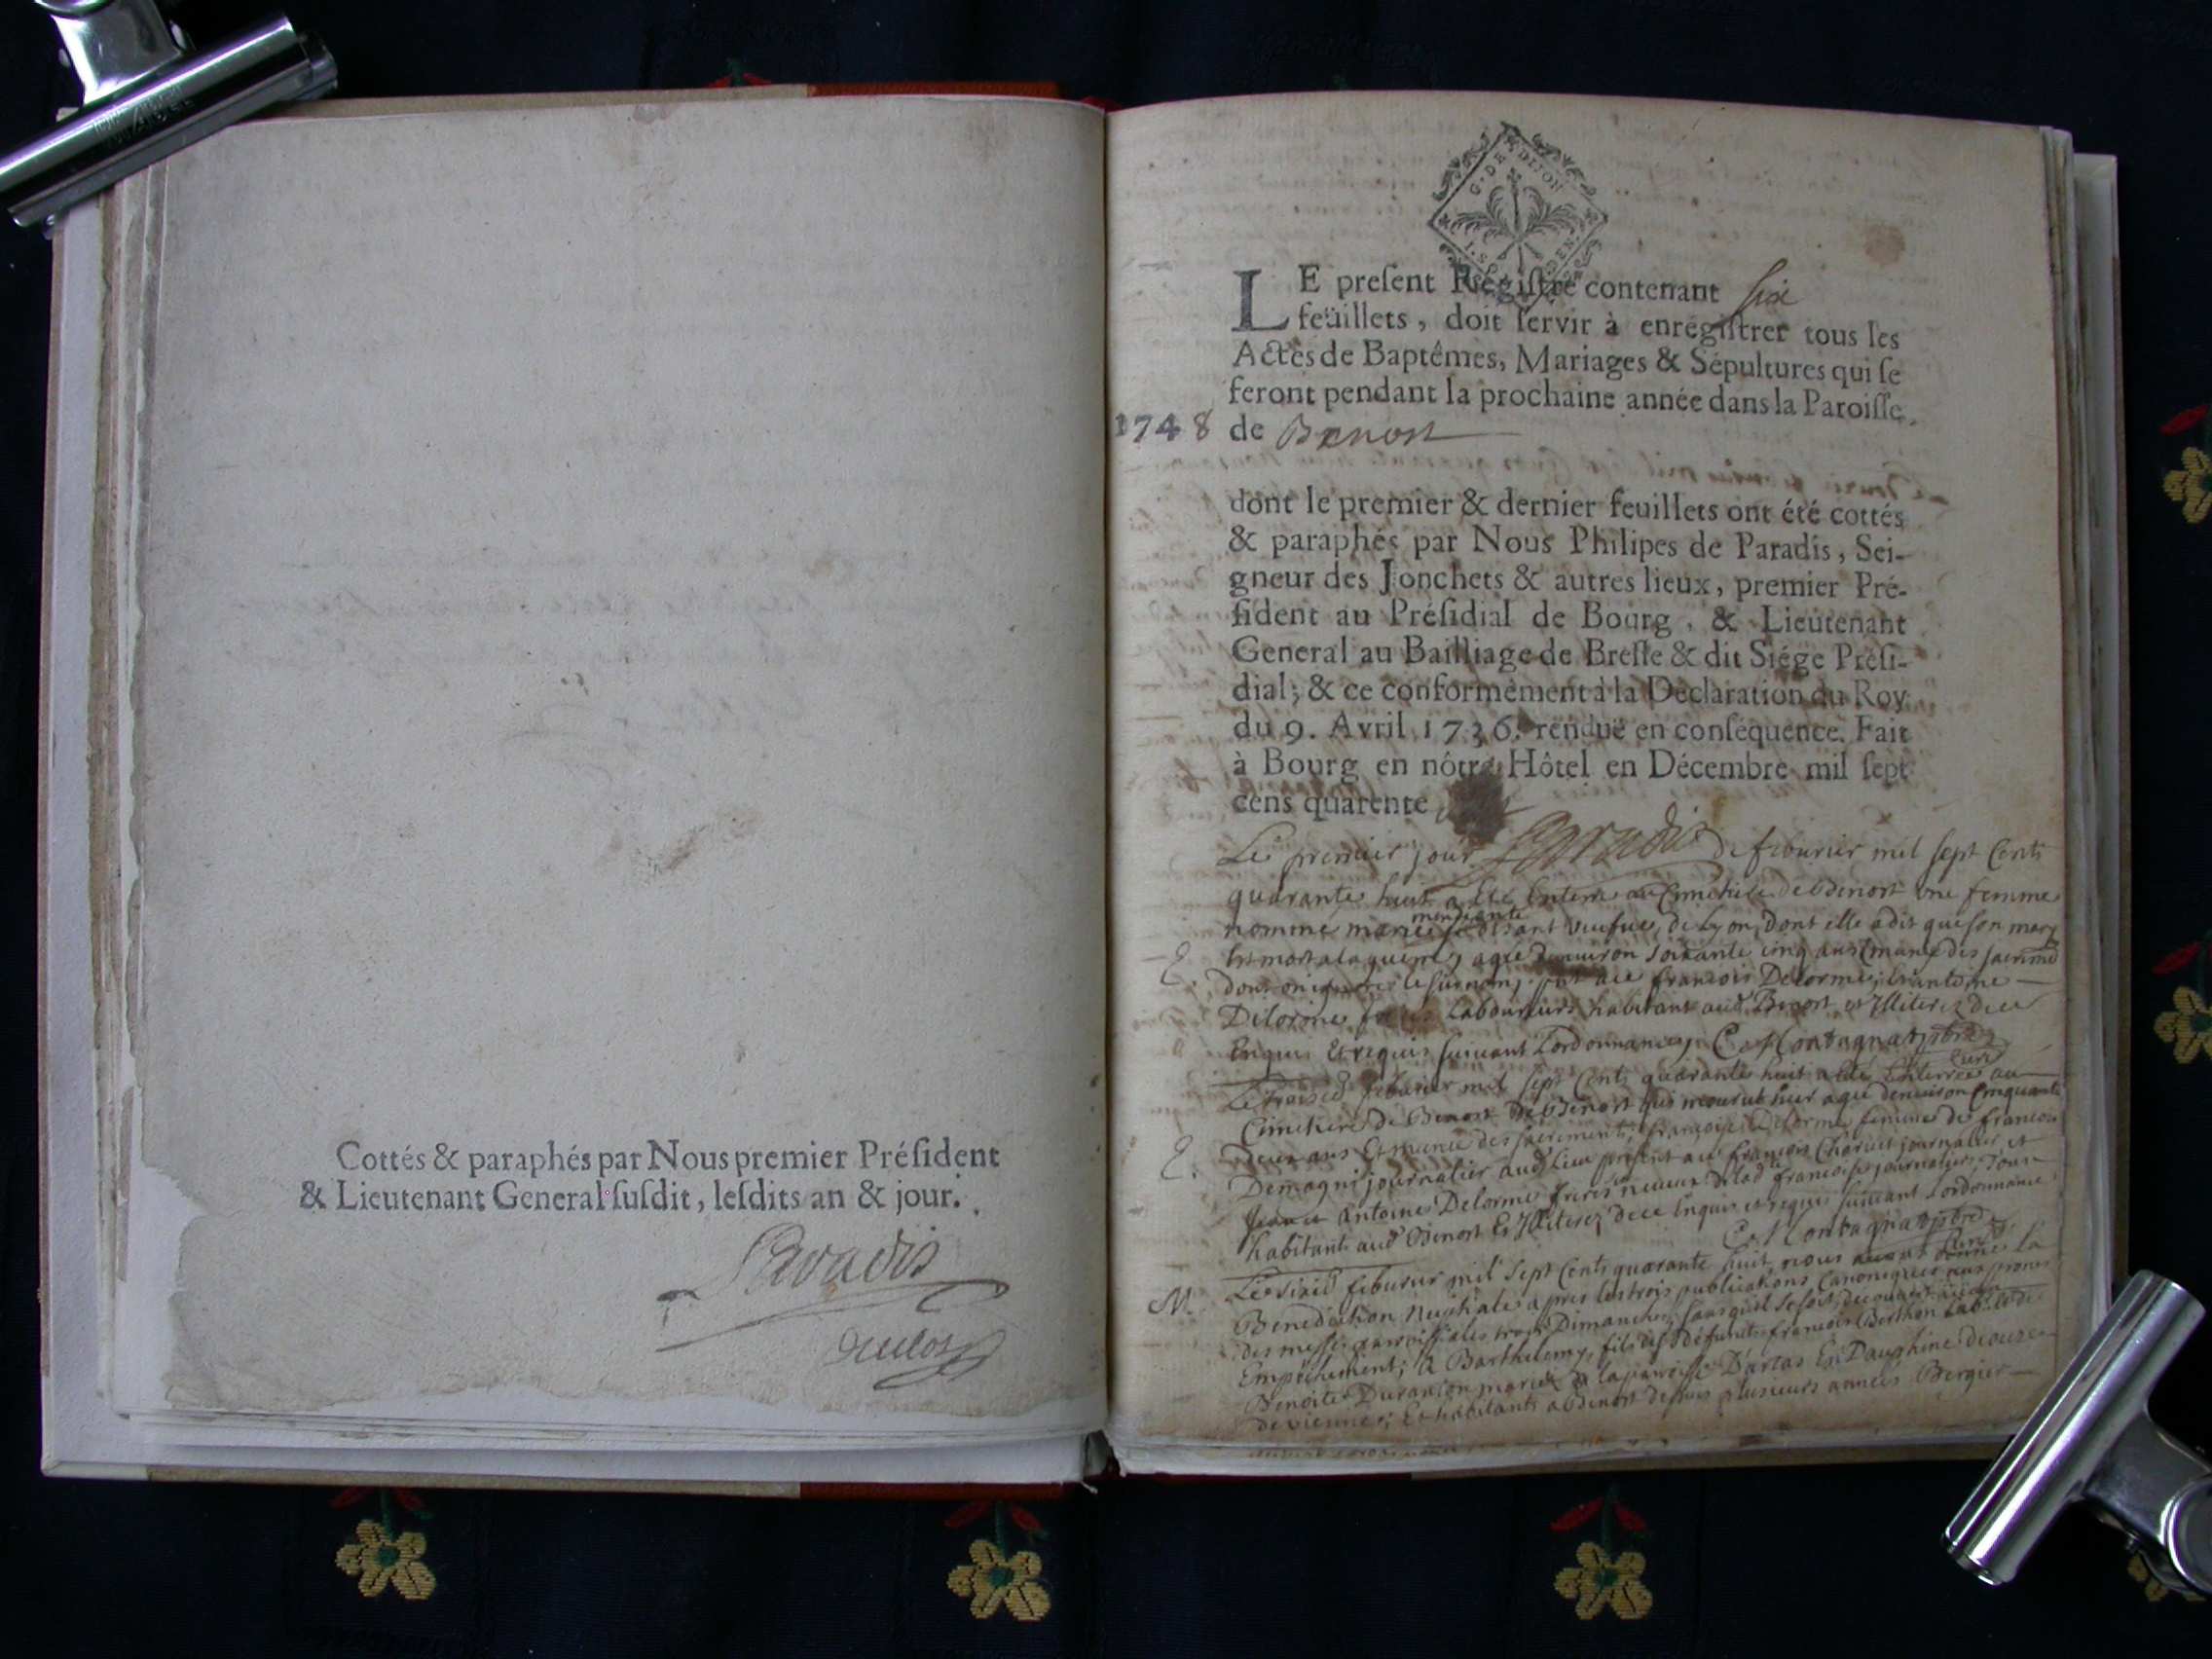 Cottés & paraphés par Nous premier Présìdent
& Lieutenant General susdit, lesdits an & jour.
Paradis
G. DE DIJON
LE present Régistre contenant six
feüillets, doit servir à enregistrer tous les
Actes de Baptêmes, Mariages & Sépultures qui se
feront pendant la prochaine année dans la Paroisse
1748 de Benost
dont le premier & dernier feuillets ont été cottés
& paraphés par Nous Philipes de Paradis, Sei-
gneur des Jonchets & autres lieux, premier Pré-
sident au Présidial de Bourg, & Lieutenant
General au Bailliage de Bresse & dit Siége Présì-
dial; & ce conformément à la Déclaration du Roy
du 9. Avril 1736. renduë en conséquence. Fait
à Bourg en nôtre Hôtel en Décembre mil sept
cens quarente
Le premier jour Paradis de feburier mil sept Cents
quarante huit a été Enterré au Cimetiere de Benost une femme
nommé marie mendiante se disant veufue, de Lyon, dont elle a dit que son mary
Est mort a la guerre, agée d'enuiron soixante cinq ans
E. dont on ignore le surnom, françois Delorme, Et antoine
Delorme Laboureurs habitants aud Benost, et Illiterez de ce
Enquis Et requis suiuant Lordonnance, C. Montagnat ptre
curé
Le troisie feburier mil sept Cents quarante huit a été Enterrée au
Cimetiere de Benost de Benost qui mourut hier agée denuiron Cinquante
E. deux ans Et munie des sacrements, françoise Delorme femme de francois
Demagni journalier aud Lieu present au françois Charuet journalier et
Jean et antoine Delorme freres neueux de lad francoise journaliers, Tous
habitants aud Benost Et Illiterez de ce Enquis et requis suiuant Lordonnance
C. Montagnat ptre
curé
M. Le sixie feburier mil sept Cents quarante huit nous auons donné la
Benediction Nuptiale apres les trois publications Canoniques aux prones
des messes paroissiales trois Dimanches, sans qu'il se soit decouuert aucun
Empechement, a Barthelemy, fils des defunts francois Berthon
Benoite Durançon mariez a la paroisse D'artas En Dauphiné diocèze
de vienne; Et habitants a Benost depuis plusieurs années Bergier